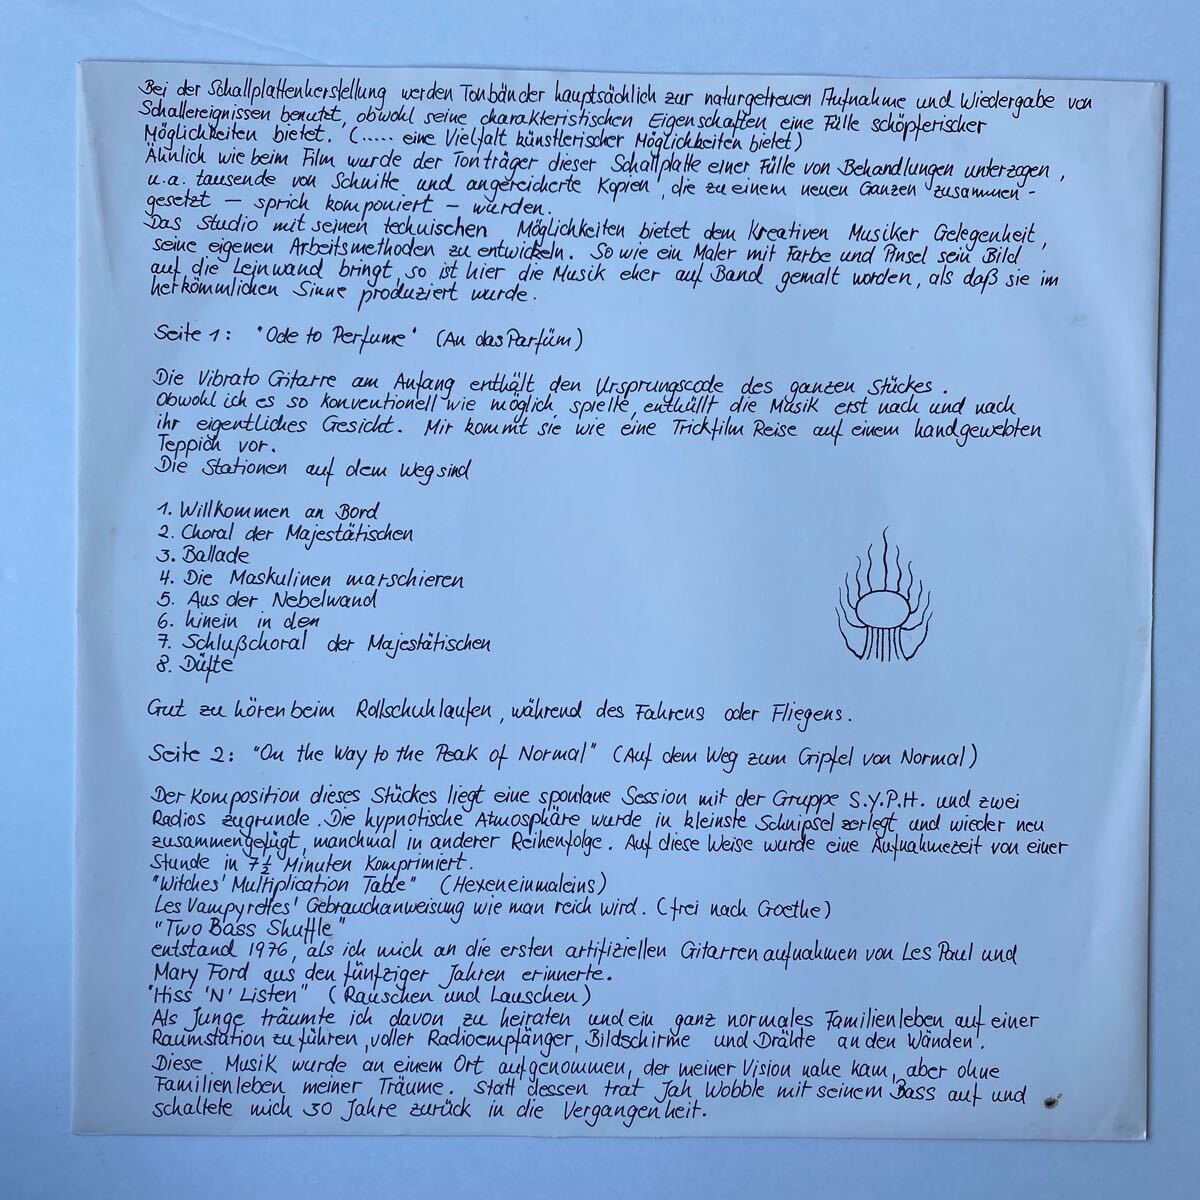 Bei der Schallplattenherstellung werden Tonbänder hauptsächlich zur naturgetreuen Aufnahme und Wiedergabe von
Schallereignissen benutzt, obwohl seine charakteristischen Eigenschaften eine Fülle schöpferischer
Möglichkeiten bietet. (..... eine Vielfalt künstlerischer Möglichkeiten bietet)
Ähnlich wie beim Film wurde der Tonträger dieser Schallplatte einer Fülle von Behandlungen unterzogen,
u.a. tausende von Schnitte und angereicherte Kopien, die zu einem neuen Ganzen zusammen-
gesetzt — sprich komponiert — wurden.
Das Studio mit seinen technischen Möglichkeiten bietet dem Kreativen Musiker Gelegenheit,
seine eigenen Arbeitsmethoden zu entwickeln. So wie ein Maler mit Farbe und Pinsel sein Bild
auf die Leinwand bringt, so ist hier die Musik eher auf Band gemalt worden, als daß sie im
herkömmlichen Sinne produziert wurde.
Seite 1: "Ode to Perfume" (An das Parfüm)
Die Vibrato Gitarre am Anfang enthält den Ursprungscode des ganzen Stückes.
Obwohl ich es so konventionell wie möglich spielte, enthüllt die Musik erst nach und nach
ihr eigentliches Gesicht. Mir kommt sie wie eine Trickfilm Reise auf einem handgewebten
Teppich vor.
Die Stationen auf dem Weg sind
1. Willkommen an Bord
2. Choral der Majestätischen
3. Ballade
4. Die Maskulinen marschieren
5. Aus der Nebelwand
6. hinein in den
7. Schlußchoral der Majestätischen
8. Düfte
Gut zu hören beim Rollschuhlaufen, während des Fahrens oder Fliegens.
Seite 2: "On the Way to the Peak of Normal" (Auf dem Weg zum Gipfel von Normal)
Der Komposition dieses Stückes liegt eine spontane Session mit der Gruppe S.Y.P.H. und zwei
Radios zugrunde. Die hypnotische Atmosphäre wurde in kleinste Schnipsel zerlegt und wieder neu
zusammengefügt, manchmal in anderer Reihenfolge. Auf diese Weise wurde eine Aufnahmezeit von einer
Stunde in 7½ Minuten Komprimiert.
"Witches' Multiplication Table" (Hexeneinmaleins)
Les Vampyrettes' Gebrauchanweisung wie man reich wird. (frei nach Goethe)
"Two Bass Shuffle"
entstand 1976, als ich mich an die ersten artifiziellen Gitarrenaufnahmen von Les Paul und
Mary Ford aus den fünfziger Jahren erinnerte.
"Hiss 'N' Listen" (Rauschen und Lauschen)
Als Junge träumte ich davon zu heiraten und ein ganz normales Familienleben auf einer
Raumstation zu führen, voller Radioempfänger, Bildschirme und Drähte an den Wänden.
Diese Musik wurde an einem Ort aufgenommen, der meiner Vision nahe kam, aber ohne
Familienleben meiner Träume. Statt dessen trat Jah Wobble mit seinem Bass auf und
schaltete mich 30 Jahre zurück in die Vergangenheit.